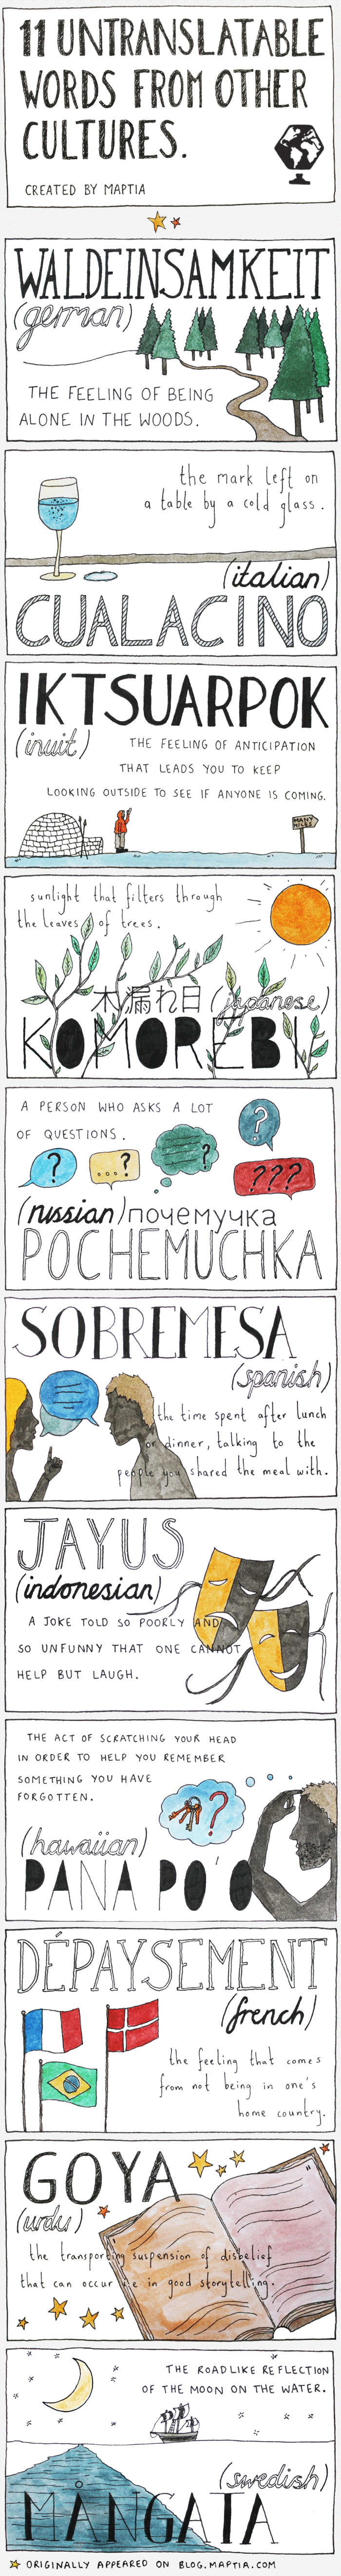 11 UNTRANSLATABLE
WORDS FROM OTHER
CULTURES.
CREATED BY MAPTIA
WALDEINSAMKEIT
(german)
THE FEELING OF BEING
ALONE IN THE WOODS.
the mark left on
a table by a cold glass.
(italian)
CUALACINO
IKTSUARPOK
(inuit)
THE FEELING OF ANTICIPATION
THAT LEADS YOU TO KEEP
LOOKING OUTSIDE TO SEE IF ANYONE IS COMING.
MANY
MILES
sunlight that filters through
the leaves of trees.
木漏れ日 (japanese)
KOMOREBI
A PERSON WHO ASKS A LOT
OF QUESTIONS.
?
?
...?
?
???
(russian) почемучка
POCHEMUCHKA
SOBREMESA
(spanish)
the time spent after lunch
or dinner, talking to the
people you shared the meal with.
JAYUS
(indonesian)
A JOKE TOLD SO POORLY AND
SO UNFUNNY THAT ONE CANNOT
HELP BUT LAUGH.
THE ACT OF SCRATCHING YOUR HEAD
IN ORDER TO HELP YOU REMEMBER
SOMETHING YOU HAVE
FORGOTTEN.
?
(hawaiian)
PANA PO'O
DÉPAYSEMENT
(french)
the feeling that comes
from not being in one's
home country.
GOYA
(urdu)
the transporting suspension of disbelief
that can occur in good storytelling.
THE ROADLIKE REFLECTION
OF THE MOON ON THE WATER.
(swedish)
MÅNGATA
ORIGINALLY APPEARED ON BLOG.MAPTIA.COM